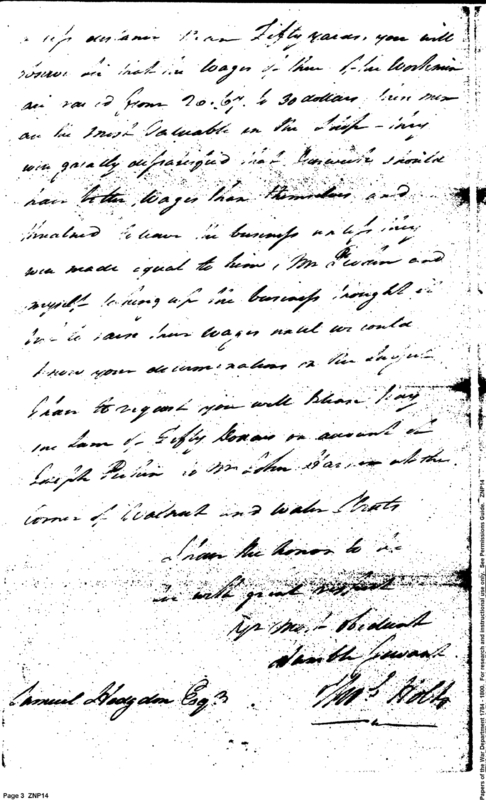 a less distance than Fifty yards. you will
observe Sir that the Wages of three of the Workmen
are raised from 20. 67. to 30 dollars these men
are the most Valuable in the Shop - they
were greatly dissatisfied that should
have better Wages than themselves and
threatned to leave the business unless they
were made equal to him, Mr Perkin and
myself taking up the business thought it
best to raise their Wages until we could
know your determinations on the Subject
I have to request you will Please Pay
the Sum of Fifty Dollars on account of
Joseph Perkin to Mr John at the
corner of Walnut and Water Streets
I have the honor to be
Sir with great respect
Yr Most Obedient
Humble Servant
Thos Holt
Samuel Hodgdon Esqr
Page 3 ZNP14
Papers of the War Department 1784 - 1800. For research and instructional use only. See Permissions Guide. ZNP14